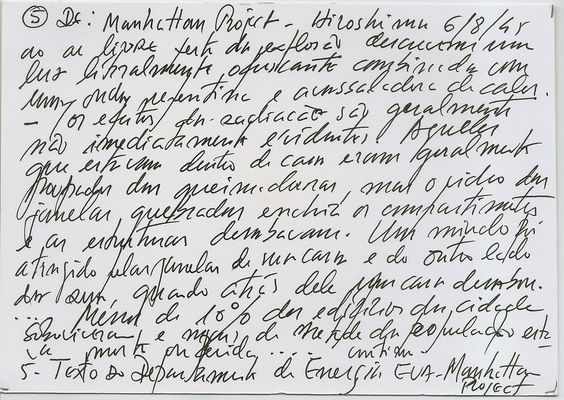 5 De: Manhattan Project - Hiroshima 6/8/45
ao ar livre perto da explosão descreveram uma
luz literalmente ofuscante combinada com
uma onda repentina e avassaladora de calor.
- Os efeitos da radiação são geralmente
não imediatamente evidentes. Aqueles
que estavam dentro de casa eram geralmente
poupados das queimaduras, mas o vidro das
janelas quebradas enchia os compartimentos
e as estruturas desabavam. Um miúdo foi
atingido pelas janelas de sua casa e do outro lado
da rua, quando atrás dele uma casa desabou.
... Menos de 10% dos edifícios da cidade
sobreviveram e mais de metade da população está
morta ou ferida....
5 - Texto do Departamento de Energia EUA - Manhattan
PROJECT